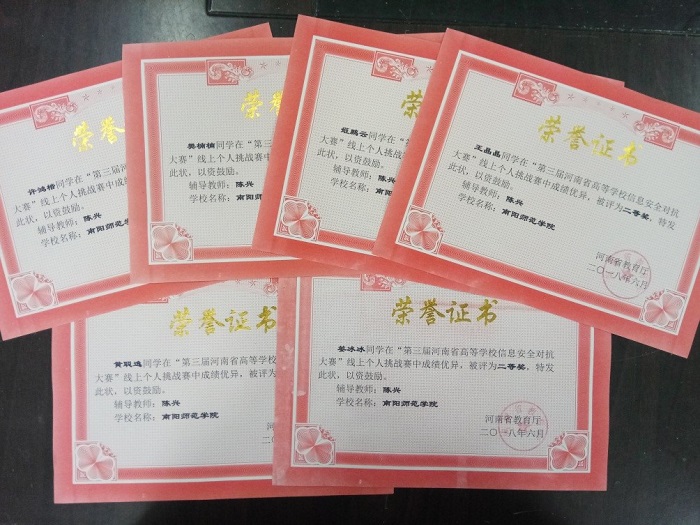 荣誉证
许鸿楷同学在“第三届河
大赛”线上个人挑战赛中成绩
此状，以资鼓励。
辅导教师：陈兴
学校名称：南阳师范
荣
樊楠楠同学在“第
大赛”线上个人挑战赛
此状，以资鼓励。
辅导教师：陈兴
学校名称：南阳
荣
姬鹏云同学在“
大赛”线上个人挑战
此状，以资鼓励。
辅导教师：陈兴
学校名称：南
荣誉证书
王晶晶同学在“第三届河南省高等学校信息安全对抗
大赛”线上个人挑战赛中成绩优异，被评为二等奖，特发
此状，以资鼓励。
辅导教师：陈兴
学校名称：南阳师范学院
河南省教育厅
二〇一八年六月
荣誉证书
黄聪逸同学在“第三届河南省高等学校
大赛”线上个人挑战赛中成绩优异，被评为
此状，以资鼓励。
辅导教师：陈兴
学校名称：南阳师范学院
河
二〇一
荣誉证书
黎冰冰同学在“第三届河南省高等学校信息安全对抗
大赛”线上个人挑战赛中成绩优异，被评为二等奖，特发
此状，以资鼓励。
辅导教师：陈兴
学校名称：南阳师范学院
河南省教育厅
二〇一八年六月